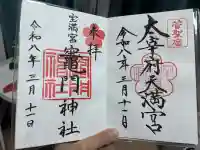 菅聖廟
太宰府天満宮
令和八年三月十一日
奉拝
宝満宮
竈門神社
令和八年三月十一日